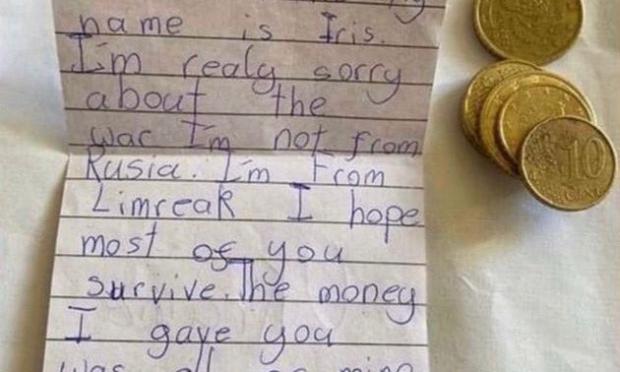 name is Iris.
I'm realy sorry
about the
war I'm not from
Rusia. I'm From
Limreak I hope
most of you
survive. The money
I gave you
was all
10